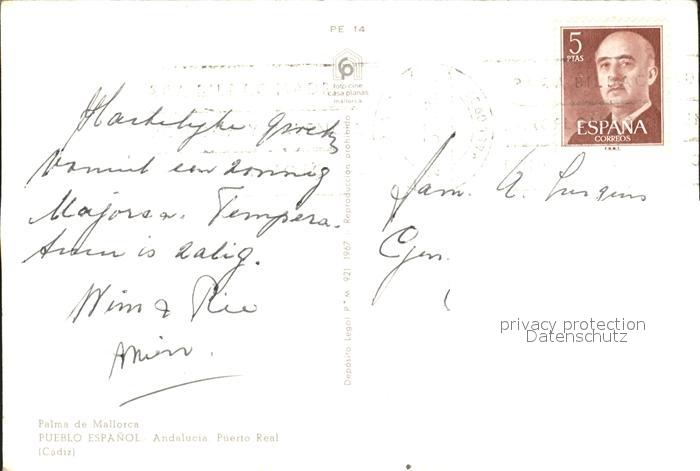 PE 14
foto-cine
casa planas
mallorca
5
PTAS
ESPAÑA
CORREOS
F.N.M.T.
Hartelijke groeten
Vanuit een zonnig
Majorca. Tempera-
tuur is zalig.
Wim & Rie
Fam. A.
privacy protection
Datenschutz
Depósito Legal P * M 921 1967 - Reproducción prohibida
Palma de Mallorca
PUEBLO ESPAÑOL - Andalucia. Puerto Real
(Cádiz)